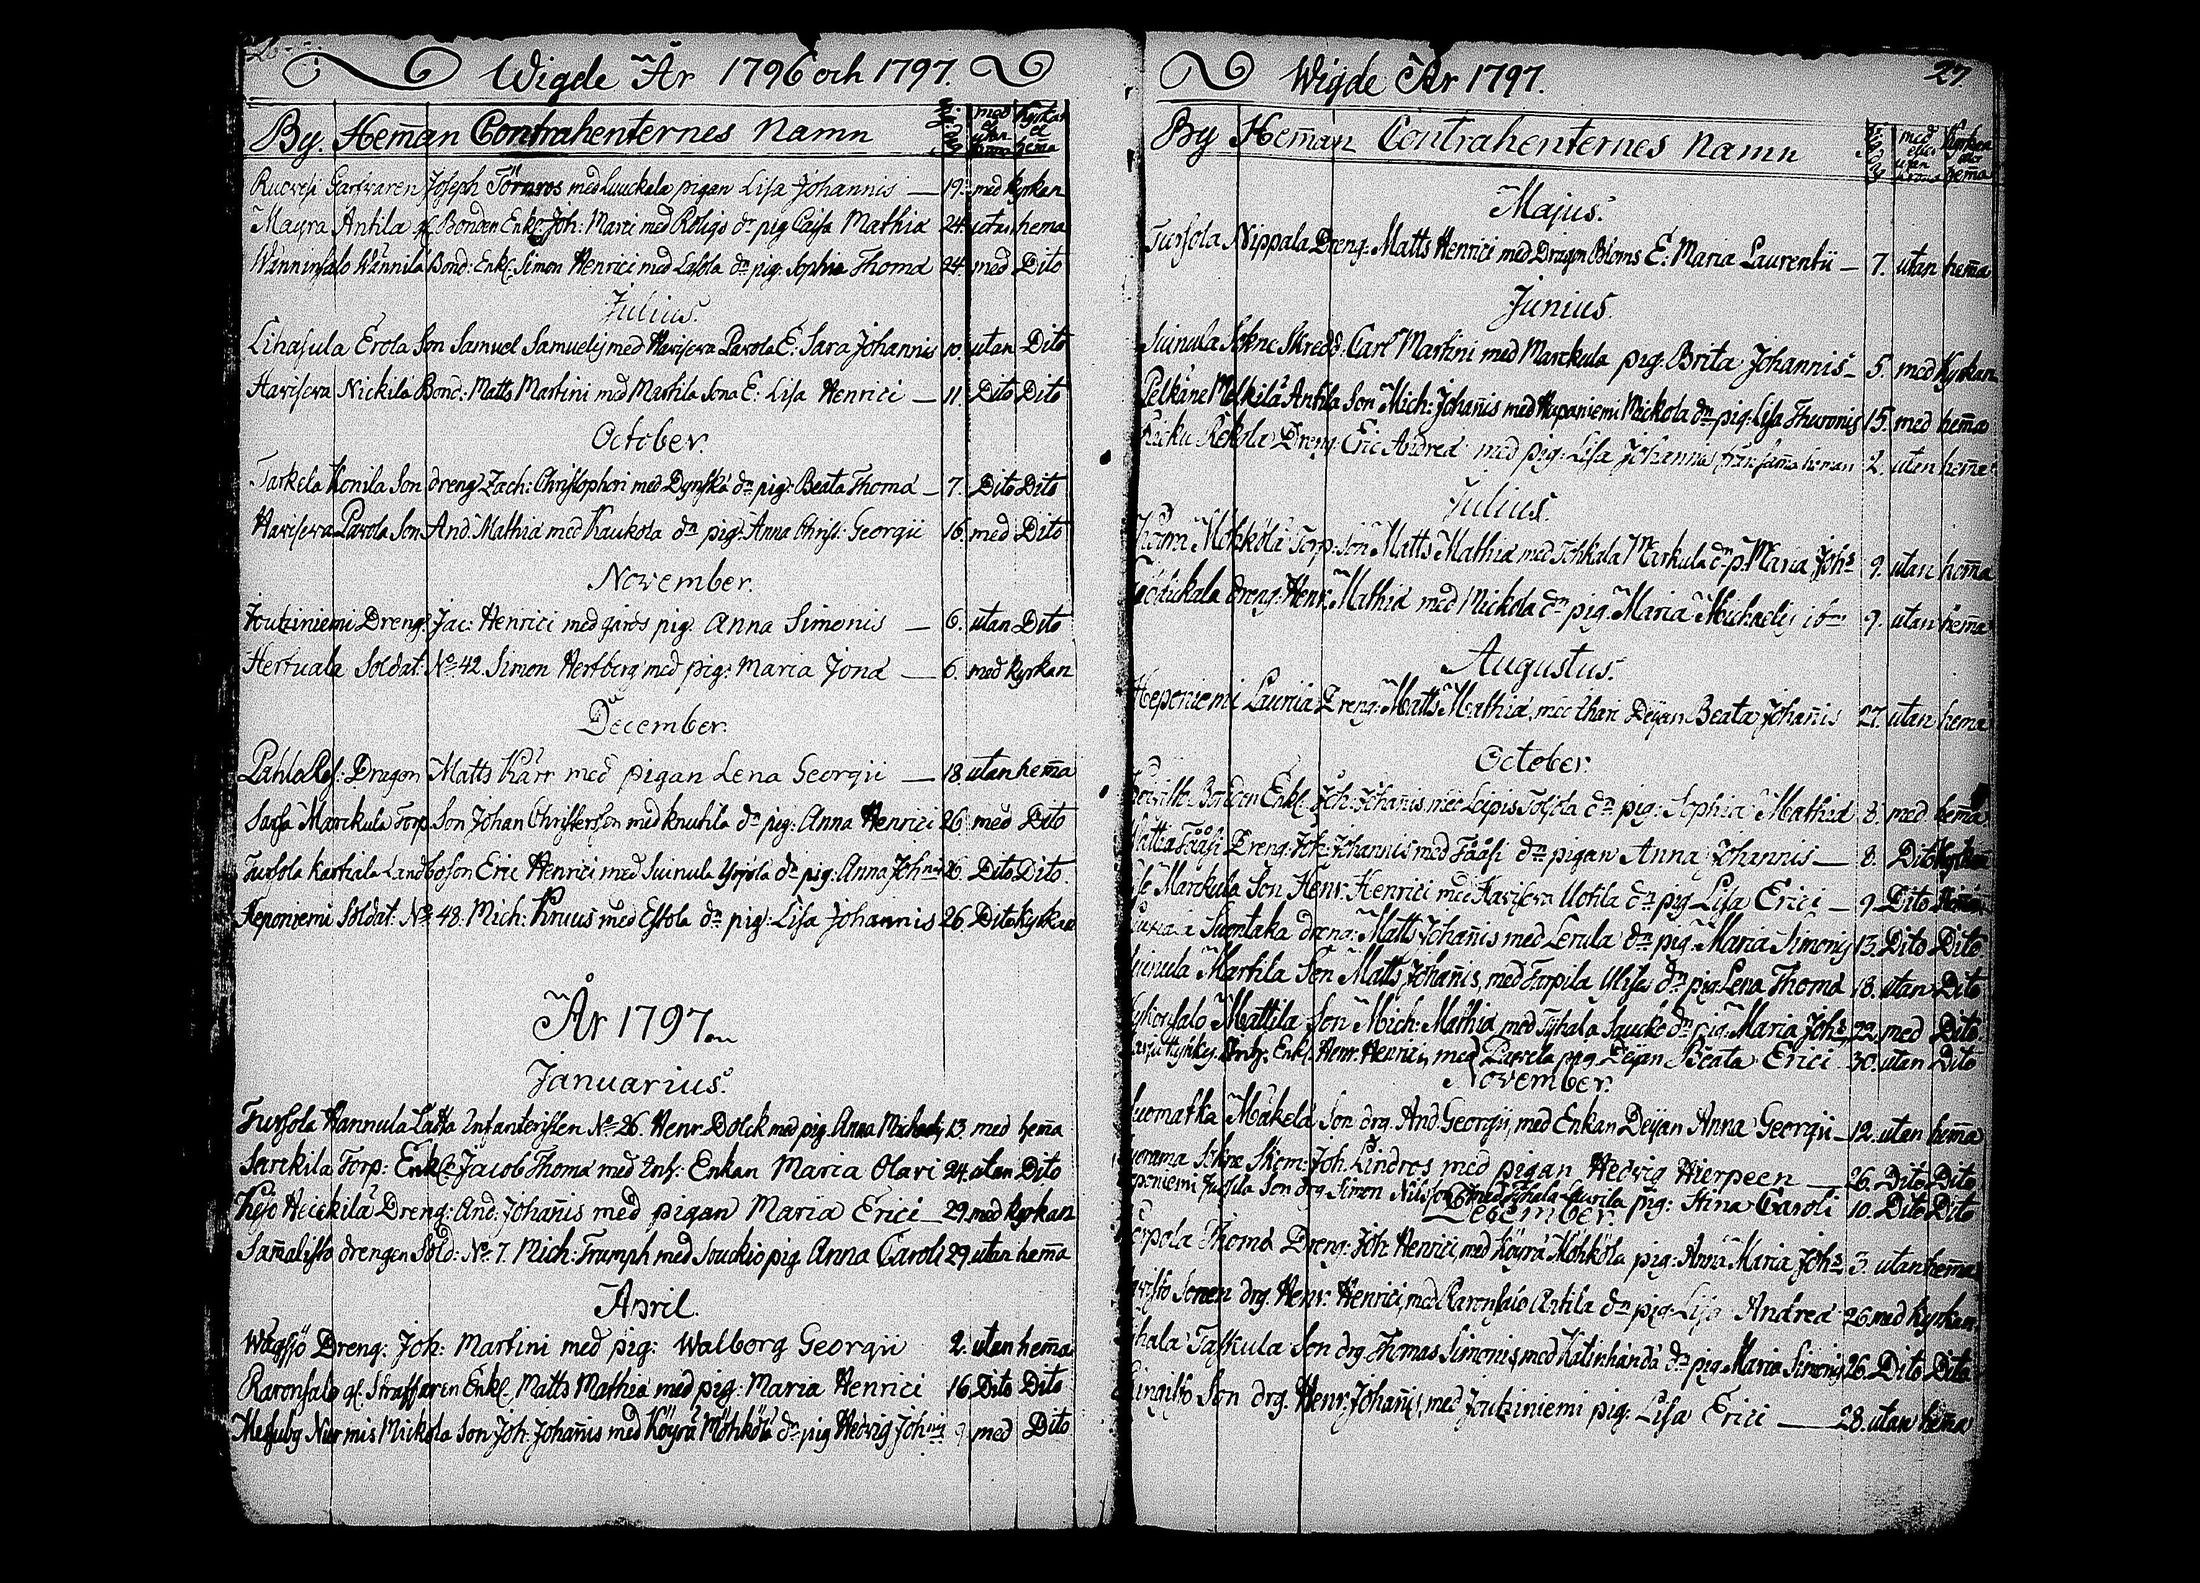 26
Wigde År 1796 och 1797.
By. Hem̄an Contrahenternes Namn
med el utan krona
Kyrkan el hema
Ruovesi Garfvaren Joseph Törnros med Luuckala pigan Lisa Johannis — 19. med kyrkan
Mayra Antila gl. Bonden Enkl. Joh: Marci med Roligs dr pig Caisa Mathiæ 24 utan hema
Wänninsalo Wännilä Bond: Enkl. Simon Henrici med Lasola dr pig: Sophia Thomæ 24. med Dito
Julius.
Lihasula Erola Son Samuel Samuelis med Haviseva Pavola E: Sara Johannis 10. utan Dito
Haviseva Nickilä Bond: Matts Martini med Martila Sona E: Lisa Henrici — 11. Dito Dito
October.
Tarkela Konila Son dreng Zach: Christophori med Dynskä dr pig: Beata Thomæ — 7. Dito Dito
Haviseva Pavola Son And. Mathiæ med Kaukola dr pig: Anna Christ: Georgii 16. med Dito
November.
Joutziniemi Dreng: Jac: Henrici med gårds pig. Anna Simonis — 6. utan Dito
Hertuala Soldat: No 42. Simon Hertberg med pig: Maria Jonæ — 6. med kyrkan
December.
Pahlo Dragon Matts Kärr med pigan Lena Georgii — 18. utan hem̄a
Sarsa Marckula Torp. Son Johan Christersson med knutila dr pig: Anna Henrici 26. med Dito
Tursola kartiala Landboson Eric Henrici med Suinula Yrjölä dr pig: Anna Johnis 26. Dito Dito.
Heponiemi Soldat: No 48. Mich: Knuus med Eskola dr pig: Lisa Johannis 26. Dito kyrkan
År 1797
Januarius.
Tursola Hannula Lätta Infanteristen No 26. Henr. Dolck med pig. Anna Michaelis 13. med hem̄a
Sarckila Torp: Enkl. Jacob Thomæ med Inh: Enkan Maria Olavi 24. utan Dito
Keso Heickilä Dreng: And: Johan̄is med pigan Maria Erici — 29. med kyrkan
Sam̄alisto drengen Sold: No 7. Mich: Trumph med Souckio pig. Anna Caroli 29. utan hem̄a
April.
Wägsjö Dreng: Joh: Martini med pig: Walborg Georgii 2. utan hem̄a
Raronsalo gl. Straffaren Enkl. Matts Mathiæ med pig: Maria Henrici 16. Dito Dito
Messuby Nurmis Mickola Son Joh: Johan̄is med Köyrä Möhkölä dr pig Hedvig Johnis 9. med Dito
27.
Wigde År 1797.
By Hem̄an Contrahenternes Namn
med eller utan krona
Kyrkan hem̄a
Majus.
Tursola Nippala Dreng: Matts Henrici med Dragon Bloms E: Maria Laurentii — 7. utan hem̄a
Junius.
Suinula Sokne Skredd: Carl Martini med Marckula pig: Brita Johannis — 5. med Kyrkan
Pelkäne Melkilä Antila Son Mich: Johan̄is med Hapaniemi Mickola dr pig: Lisa Thuronis 15. med hem̄a
Rekola Dreng: Eric Andreæ med pig: Lisa Johannis från sam̄a heman 2. utan hem̄a
Julius.
Mohkölä Torp: Son Matts Mathiæ med Tohkala Markula dr p: Maria Johs 9. utan hem̄a
dreng: Henr. Mathiæ med Mickola dr pig. Maria Michaelis 9. utan hem̄a
Augustus.
Heponiemi Laurila Dreng: Matts Mathiæ, med Deijan Beata Johan̄is 27. utan hem̄a
October.
Bonden Enkl. Joh: Johan̄is med Leipis dr pig: Sophia Mathiæ 8. med hem̄a
Tååsi Dreng: Joh: Johannis med Tååsi dr pigan Anna Johannis — 8. Dito Kyrkan
Marckula Son Henr. Henrici med Haviseva Uotila dr pig Lisa Erici — 9. Dito
Suontaka dreng: Matts Johan̄is med Lerula dr pig: Maria Simonis 13. Dito Dito
Suinula Martila Son Matts Johan̄is, med Tarpila dr pig. Lena Thomæ 18. utan Dito
Mattila Son Mich: Mathiæ med Tyhala Saucko dr pig: Maria Johs 22. med Dito
Enkl. Henr. Henrici, med Pavela pig Deijan Beata Erici 30. utan Dito
November.
Mäkelä Son drg. And Georgii, med Enkan Deijan Anna Georgii — 12. utan hem̄a
Sokne Skom: Joh. Lindros med pigan Hedvig Hierpeen — 26. Dito Dito
Heponiemi Jussila Son drg Simon Nilsson med Tyhala Laurila pig: Stina Caroli 10. Dito Dito
December.
Thomæ Dreng: Joh: Henrici, med Köyrä Mohkölä pig: Anna Maria Johs 3. utan hem̄a
Sonen drg. Henr: Henrici, med Raronsalo Antila dr pig. Lisa Andreæ 26. med kyrkan
Taskula Son drg Thomas Simonis, med Katinhändä dr pig. Maria Simonis 26. Dito Dito
Son drg. Henr: Johan̄is, med Joutziniemi pig: Lisa Erici — 28. utan hem̄a